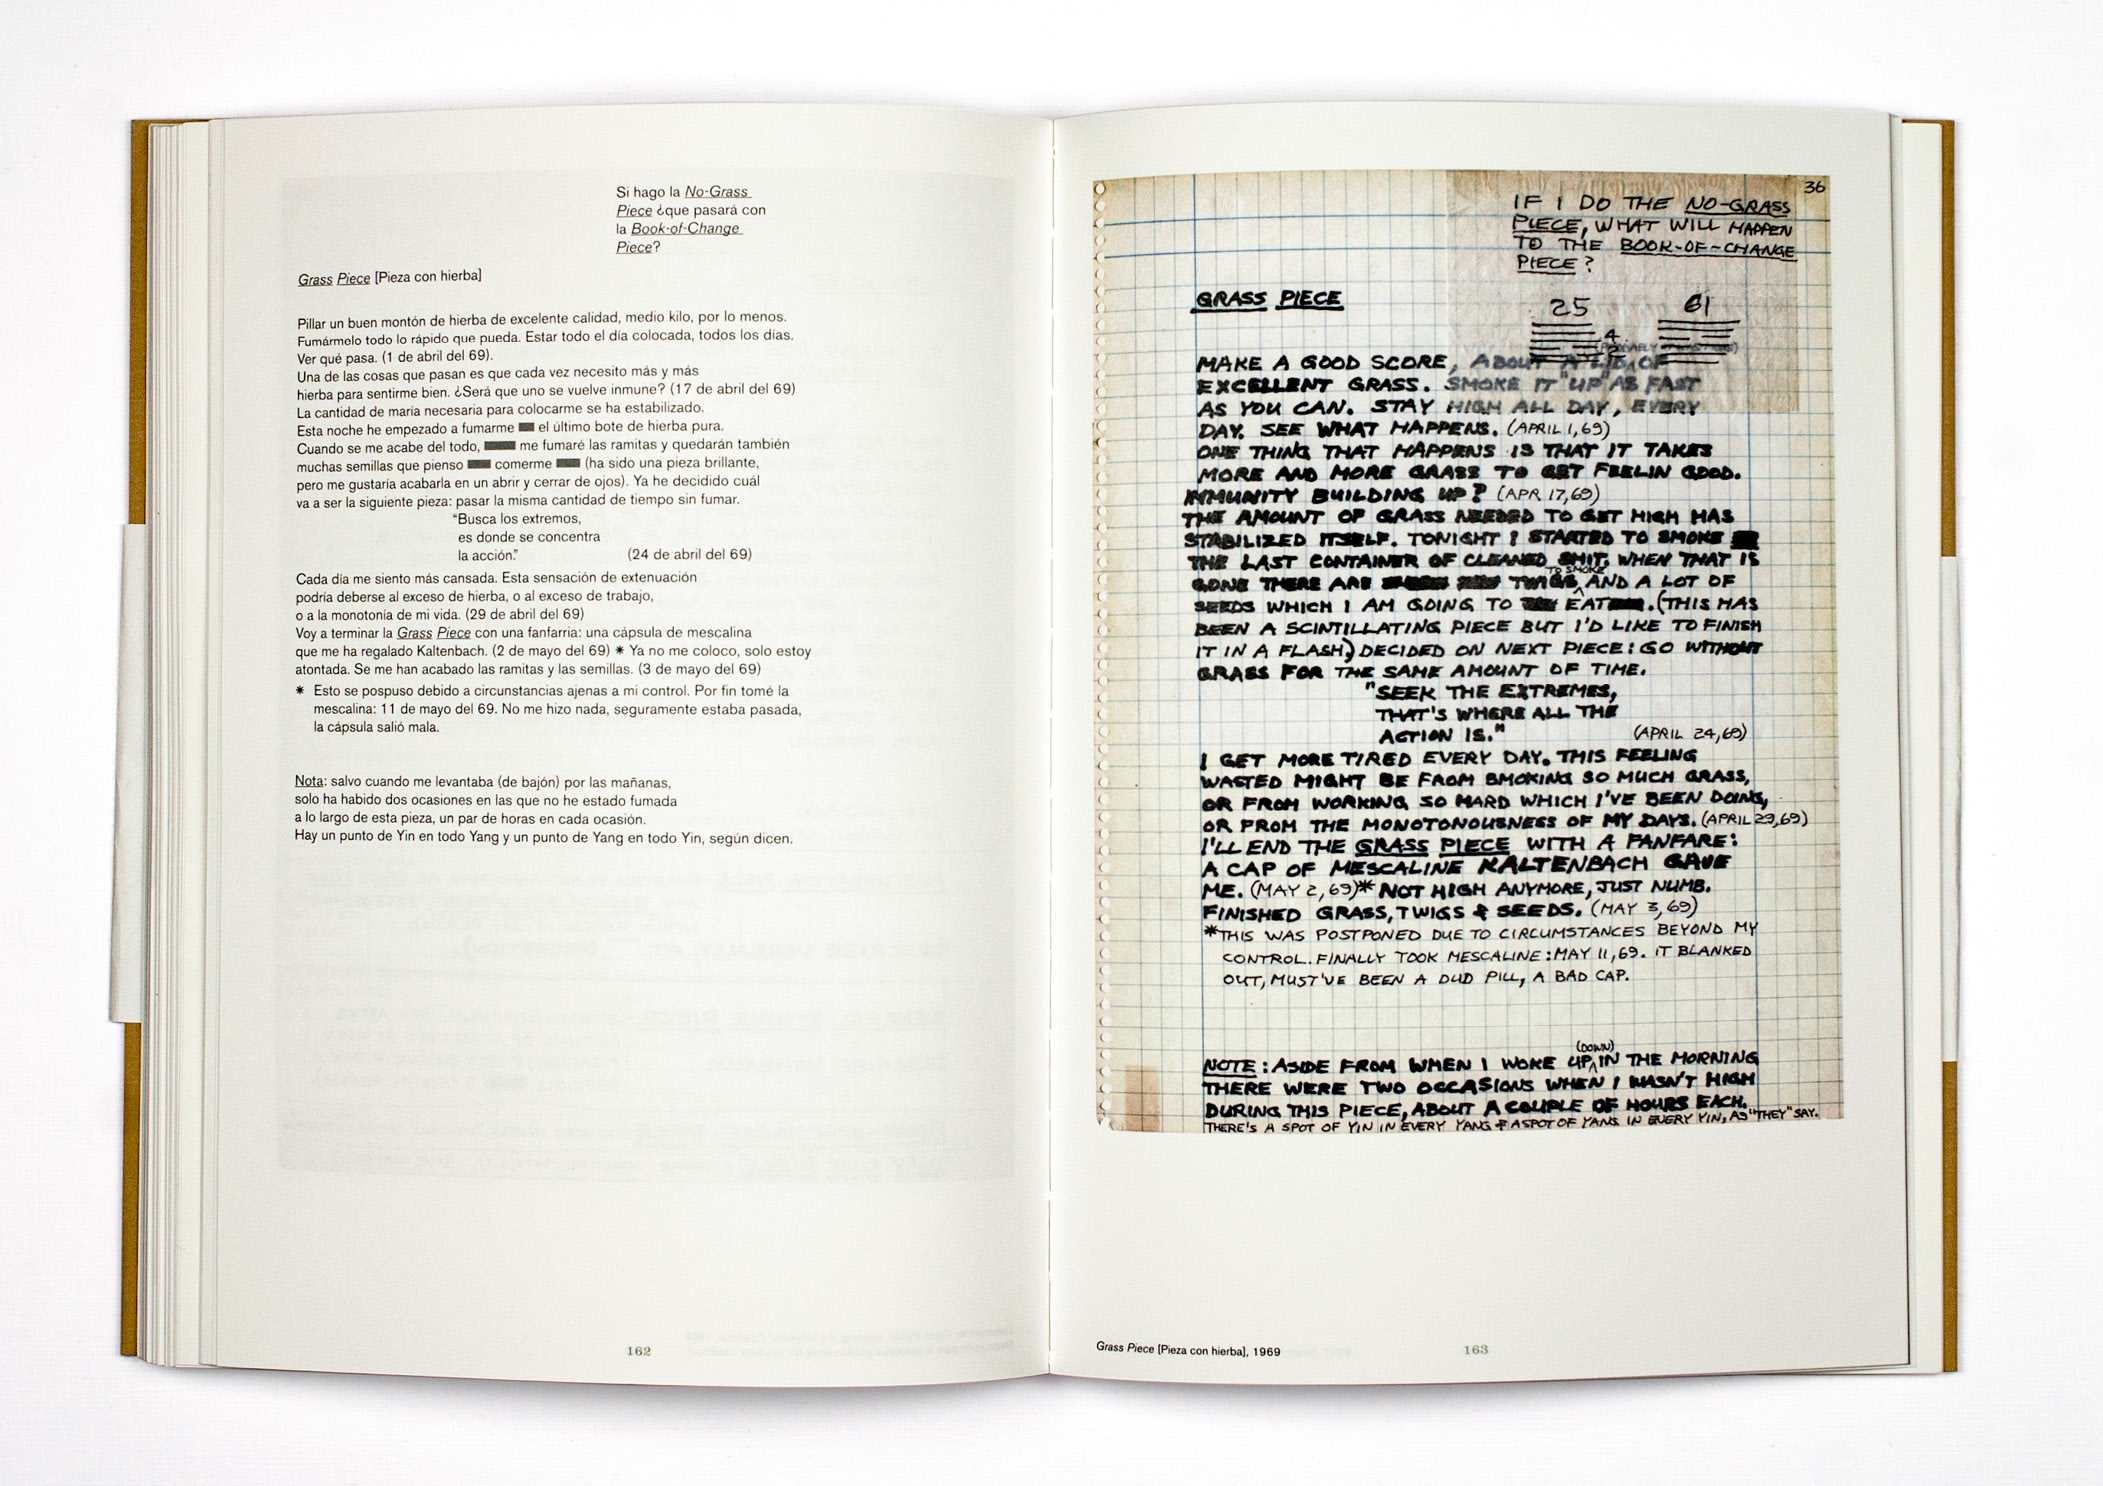 Si hago la No-Grass
Piece ¿que pasará con
la Book-of-Change
Piece?
Grass Piece [Pieza con hierba]
Pillar un buen montón de hierba de excelente calidad, medio kilo, por lo menos.
Fumármelo todo lo rápido que pueda. Estar todo el día colocada, todos los días.
Ver qué pasa. (1 de abril del 69).
Una de las cosas que pasan es que cada vez necesito más y más
hierba para sentirme bien. ¿Será que uno se vuelve inmune? (17 de abril del 69)
La cantidad de maría necesaria para colocarme se ha estabilizado.
Esta noche he empezado a fumarme el último bote de hierba pura.
Cuando se me acabe del todo, me fumaré las ramitas y quedarán también
muchas semillas que pienso comerme (ha sido una pieza brillante,
pero me gustaría acabarla en un abrir y cerrar de ojos). Ya he decidido cuál
va a ser la siguiente pieza: pasar la misma cantidad de tiempo sin fumar.
“Busca los extremos,
es donde se concentra
la acción.” (24 de abril del 69)
Cada día me siento más cansada. Esta sensación de extenuación
podría deberse al exceso de hierba, o al exceso de trabajo,
o a la monotonía de mi vida. (29 de abril del 69)
Voy a terminar la Grass Piece con una fanfarria: una cápsula de mescalina
que me ha regalado Kaltenbach. (2 de mayo del 69) * Ya no me coloco, solo estoy
atontada. Se me han acabado las ramitas y las semillas. (3 de mayo del 69)
* Esto se pospuso debido a circunstancias ajenas a mi control. Por fin tomé la
mescalina: 11 de mayo del 69. No me hizo nada, seguramente estaba pasada,
la cápsula salió mala.
Nota: salvo cuando me levantaba (de bajón) por las mañanas,
solo ha habido dos ocasiones en las que no he estado fumada
a lo largo de esta pieza, un par de horas en cada ocasión.
Hay un punto de Yin en todo Yang y un punto de Yang en todo Yin, según dicen.
162
36
IF I DO THE NO-GRASS
PIECE, WHAT WILL HAPPEN
TO THE BOOK-OF-CHANGE
PIECE?
GRASS PIECE
25 61
4
MAKE A GOOD SCORE, ABOUT A LID OF
EXCELLENT GRASS. SMOKE IT "UP" AS FAST
AS YOU CAN. STAY HIGH ALL DAY, EVERY
DAY. SEE WHAT HAPPENS. (APRIL 1,69)
ONE THING THAT HAPPENS IS THAT IT TAKES
MORE AND MORE GRASS TO GET FEELIN GOOD.
IMMUNITY BUILDING UP? (APR 17,69)
THE AMOUNT OF GRASS NEEDED TO GET HIGH HAS
STABILIZED ITSELF. TONIGHT I STARTED TO SMOKE
THE LAST CONTAINER OF CLEANED SHIT. WHEN THAT IS
GONE THERE ARE TWIGS TO SMOKE AND A LOT OF
SEEDS WHICH I AM GOING TO EAT. (THIS HAS
BEEN A SCINTILLATING PIECE BUT I'D LIKE TO FINISH
IT IN A FLASH) DECIDED ON NEXT PIECE: GO WITHOUT
GRASS FOR THE SAME AMOUNT OF TIME.
"SEEK THE EXTREMES,
THAT'S WHERE ALL THE
ACTION IS." (APRIL 24,69)
I GET MORE TIRED EVERY DAY. THIS FEELING
WASTED MIGHT BE FROM SMOKING SO MUCH GRASS,
OR FROM WORKING SO HARD WHICH I'VE BEEN DOING,
OR FROM THE MONOTONOUSNESS OF MY DAYS. (APRIL 29,69)
I'LL END THE GRASS PIECE WITH A FANFARE:
A CAP OF MESCALINE KALTENBACH GAVE
ME. (MAY 2,69)* NOT HIGH ANYMORE, JUST NUMB.
FINISHED GRASS, TWIGS & SEEDS. (MAY 3,69)
*THIS WAS POSTPONED DUE TO CIRCUMSTANCES BEYOND MY
CONTROL. FINALLY TOOK MESCALINE: MAY 11,69. IT BLANKED
OUT, MUST'VE BEEN A DUD PILL, A BAD CAP.
NOTE: ASIDE FROM WHEN I WOKE UP (DOWN) IN THE MORNING
THERE WERE TWO OCCASIONS WHEN I WASN'T HIGH
DURING THIS PIECE, ABOUT A COUPLE OF HOURS EACH.
THERE'S A SPOT OF YIN IN EVERY YANG & A SPOT OF YANG IN EVERY YIN, AS "THEY" SAY.
Grass Piece [Pieza con hierba], 1969
163